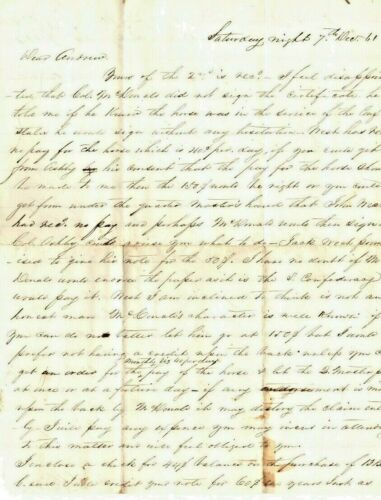 Saturday night 7th Dec. 61
Dear Andrew
Yours of the 2nd is recd. I feel disappoin
ted, that Col. McDonald did not sign the certificate he
told me if he knew the horse was in the service of the
he would sign without any hesitation. West has
no pay for the horse which is 40c per. day, if you could get
from Ashby his consent that the pay for the horse should
be made to me then the 150$ would be right or you could
get from under the quarter Masters hand that John West
had recd. no pay and perhaps McDonald would then sign
Col. Ashby could advise you what to do - Jack West prom
ised to give his note for the 50$. I have no doubt if Mc
Donald would endorse the paper as it is the S. Confederacy
would pay it. West I am inclined to think is not an
honest man McDonald's character is well known if
you can do no better let him go at 150$ but I would
prefer not having a credit upon the back unless you can
get an order for the pay of the horse & let the
at once or at a future day - if any is made
upon the back by McDonald it may destroy the claim
I will pay any expence you may incur in atten
to this matter and will feel obliged to you.
I enclose a check for 44$ balance on the purchase of
I will credit your note for 60$